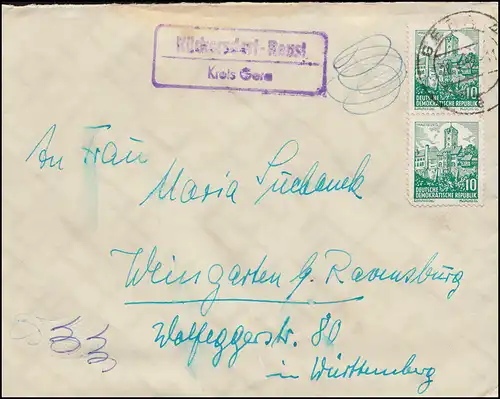 Rückersdorf-Reust
Kreis Gera
GERA
DEUTSCHE
DEMOKRATISCHE REPUBLIK
10
DEUTSCHE
DEMOKRATISCHE REPUBLIK
10
An Frau
Maria Suchanek
Weingarten b. Ravensburg
Wolfeggerstr. 80
in Württemberg